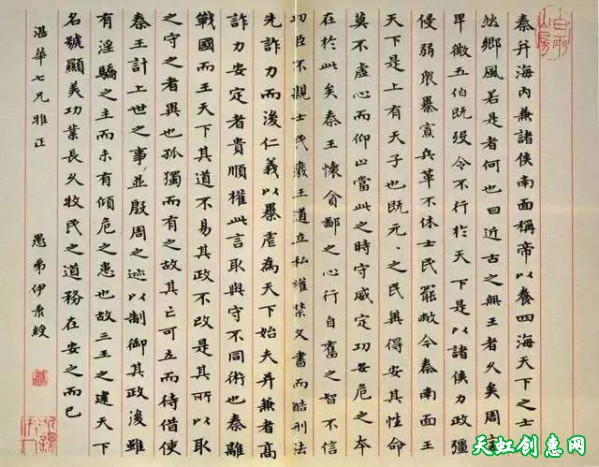 秦并海內兼諸侯南面稱帝以養四海天下之士
然鄉風若是者何也曰近古之無王者久矣周
卑微五伯既歿令不行於天下是以諸侯力政彊
侵弱眾暴寡兵革不休士民罷敝今秦南面王
天下是上有天子也既元〻之民冀得安其性命
莫不虛心而仰上當此之時守威定功安危之本
在於此矣秦王懷貪鄙之心行自奮之智不信
功臣不親士民廢王道立私權禁文書而酷刑法
先詐力而後仁義以暴虐為天下始夫并兼者高
詐力安定者貴順權此言取與守不同術也秦離
戰國而王天下其道不易其政不改是其所以取
之守之者異也孤獨而有之故其亡可立而待借使
秦王計上世之事並殷周之迹以制御其政後雖
有淫驕之主而未有傾危之患也故三王之建天下
名號顯美功業長久牧民之道務在安之而已
華七兄雅正
愚弟伊秉綬
天虹创惠网